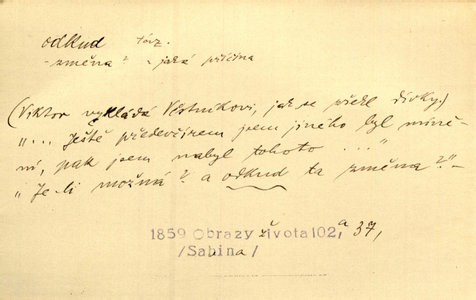 odkud táz.
- změna? - jaká příčina
(Viktor vykládá Věstníkovi, jak se vděl dívky.)
"... Ještě předevčírem jsem jiného byl míně-
ní, pak jsem nabyl tohoto ..."
"Je-li možná? a odkud ta změna?"-
1859 Obrazy života 102, a 37,
/Sabina/